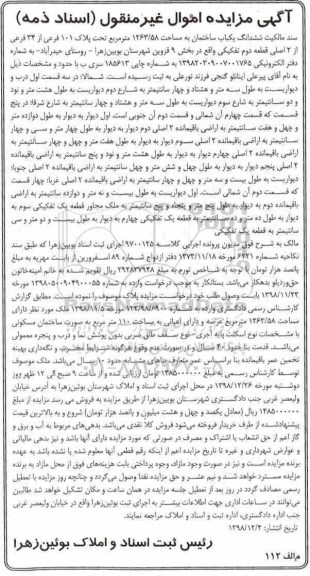 آگهی مزایده اموال غیرمنقول (اسناد ذمه)
سند مالکیت ششدانگ یکباب ساختمان به مساحت ۱۲۶۳/۵۸ مترمربع تحت پلاک ۱۰۱ فرعی از ۳۴ فرعی
از ۲ اصلی قطعه دوم تفکیکی واقع در بخش ۹ قزوین شهرستان بویین‌زهرا - روستای حیدرآباد- به شماره
دفتر الکترونیکی ۱۳۹۸۲۰۳۰۹۰۰۷۰۰۱۷۶۵ به شماره چاپی ۱۸۵۶۱۳ سری ب با حدود و مشخصات ذیل
به نام آقای پیرعلی اینانلو گنجی فرزند تورعلی به ثبت رسیده است. شمالا: در سه قسمت اول درب و
دیوار به طول سی متر و هشتاد و چهار سانتیمتر به شارع دوم دیواریست به طول هشت متر و نود
و دو سانتیمتر به شارع سوم دیواریست به طول سه متر و هشتاد و چهار سانتیمتر به شارع شرقا: در پنج
قسمت که قسمت چهارم آن شمالی و قسمت دوم آن جنوبی است. اول دیوار به دیوار به طول دوازده متر
و چهل و هفت سانتیمتر به اراضی باقیمانده ۲ اصلی دوم دیوار به دیوار به طول چهار متر و سی و چهار
سانتیمتر به اراضی باقیمانده ۲ اصلی سوم دیوار به دیوار به طول هفت متر و چهل و چهار سانتیمتر به
اراضی باقیمانده ۲ اصلی چهارم دیوار به دیوار به طول هشت متر و نود و پنج سانتیمتر به اراضی باقیمانده
۲ اصلی پنجم دیوار به دیوار به طول چهل و شش متر و چهل سانتیمتر به اراضی باقیمانده ۲ اصلی جنوبا:
دیواریست به طول بیست و سه متر و چهل و چهار سانتیمتر به اراضی باقیمانده ۲ اصلی غربا: چهار قسمت
که قسمت دوم آن شمالی است. اول دیواریست به طول بیست و نه متر و دوازده سانتیمتر به اراضی
باقیمانده دوم به دیوار به طول پنج متر و پنجاه و پنج سانتیمتر به ملک مجاور قطعه یک تفکیکی سوم به
دیوار به طول ده متر و ده سانتیمتر به قطعه یک تفکیکی چهارم به دیوار به طول بیست و دو متر و سی
سانتیمتر به قطعه یک تفکیکی
مالک به شرح فوق مدیون پرونده اجرایی کلاسه ۹۷۰۰۱۲۵ اجرای ثبت اسناد بویین‌زهرا که طبق سند
نکاحیه شماره ۶۲۲۱ مورخه ۱۳۷۳/۱۱/۱۸ دفتر ازدواج شماره ۸۹ اسفرورین از بابت مهریه به مبلغ
پانصد هزار تومان با توجه به شاخص تورم به مبلغ ریال تقویم شده به خانم امینه‌خاتون
حق‌وردیلو بدهکار می‌باشد. بستانکار به موجب درخواست وارده به شماره مورخه
۱۳۹۸/۱۱/۲۳ بابت وصول طلب خود درخواست مزایده پلاک موصوف را نموده است. مطابق گزارش
کارشناس رسمی دادگستری وارده به شماره مورخه ملک مورد نظر دارای
۱۲۶۳/۵۸ مترمربع عرصه و دارای اعیانی به مساحت ۱۱۰ متر مربع به صورت ساختمان مسکونی
می‌باشد.
تخمین عمر باقیمانده بنا
توسط کارشناس رسمی به مبلغ ۱۴۸۵۰۰۰۰۰۰ ریال از ساعت ۹ صبح الی ۱۲ ظهر روز
دوشنبه مورخه ۱۳۹۸/۱۲/۲۶ در محل اجرای ثبت اسناد و املاک شهرستان بوئین‌زهرا به آدرس خیابان
ولیعصر غربی جنب دادگستری شهرستان بویین‌زهرا از طریق مزایده به فروش می رسد مزایده از مبلغ
۱۴۸۵۰۰۰۰۰۰ ریال (معادل یکصد و چهل و هشت میلیون و پانصد هزار تومان) شروع و به بالاترین قیمت
پیشنهادی از طرف خریدار فروخته می‌شود فروش کلا نقدی می‌باشد. بدهی‌های مربوط به آب و برق و
گاز اعم از حق انشعاب یا اشتراک و مصرف در صورتی که مورد مزایده دارای آنها باشد و نیز بدهی مالیاتی
و عوارض شهرداری و غیره تا تاریخ مزایده اعم از اینکه رقم قطعی آنها معلوم شده یا نشده باشد به عهده
برنده مزایده است و نیز در صورت وجود مازاد وجوه پرداختی بابت هزینه‌های فوق از محل مازاد به برنده
مزایده مسترد خواهد شد و نیم عشر و حق مزایده نقدا وصول می‌گردد و چنانچه روز مزایده با تعطیل
رسمی مصادف گردد در روز بعد از تعطیل جلسه مزایده در همان ساعت و مکان تشکیل خواهد شد طالبین
می‌توانند در ساعات اداری جهت اطلاعات بیشتر به اجرای ثبت بویین‌زهرا واقع در خیابان ولیعصر غربی
جنب اداره دادگستری، اداره ثبت و اسناد و املاک مراجعه نمایند.
تاریخ انتشار: ۱۳۹۸/۱۲/۴
رئیس ثبت اسناد و املاک بوئین‌زهرا
م‌الف ۱۱۲